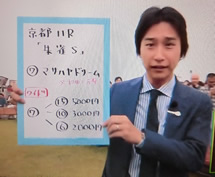 京都 11R
「朱雀S」
⑦ マサハヤドリーム
ワイド
⑦
⑬ 5000円
⑩ 3000円
⑥ 2000円